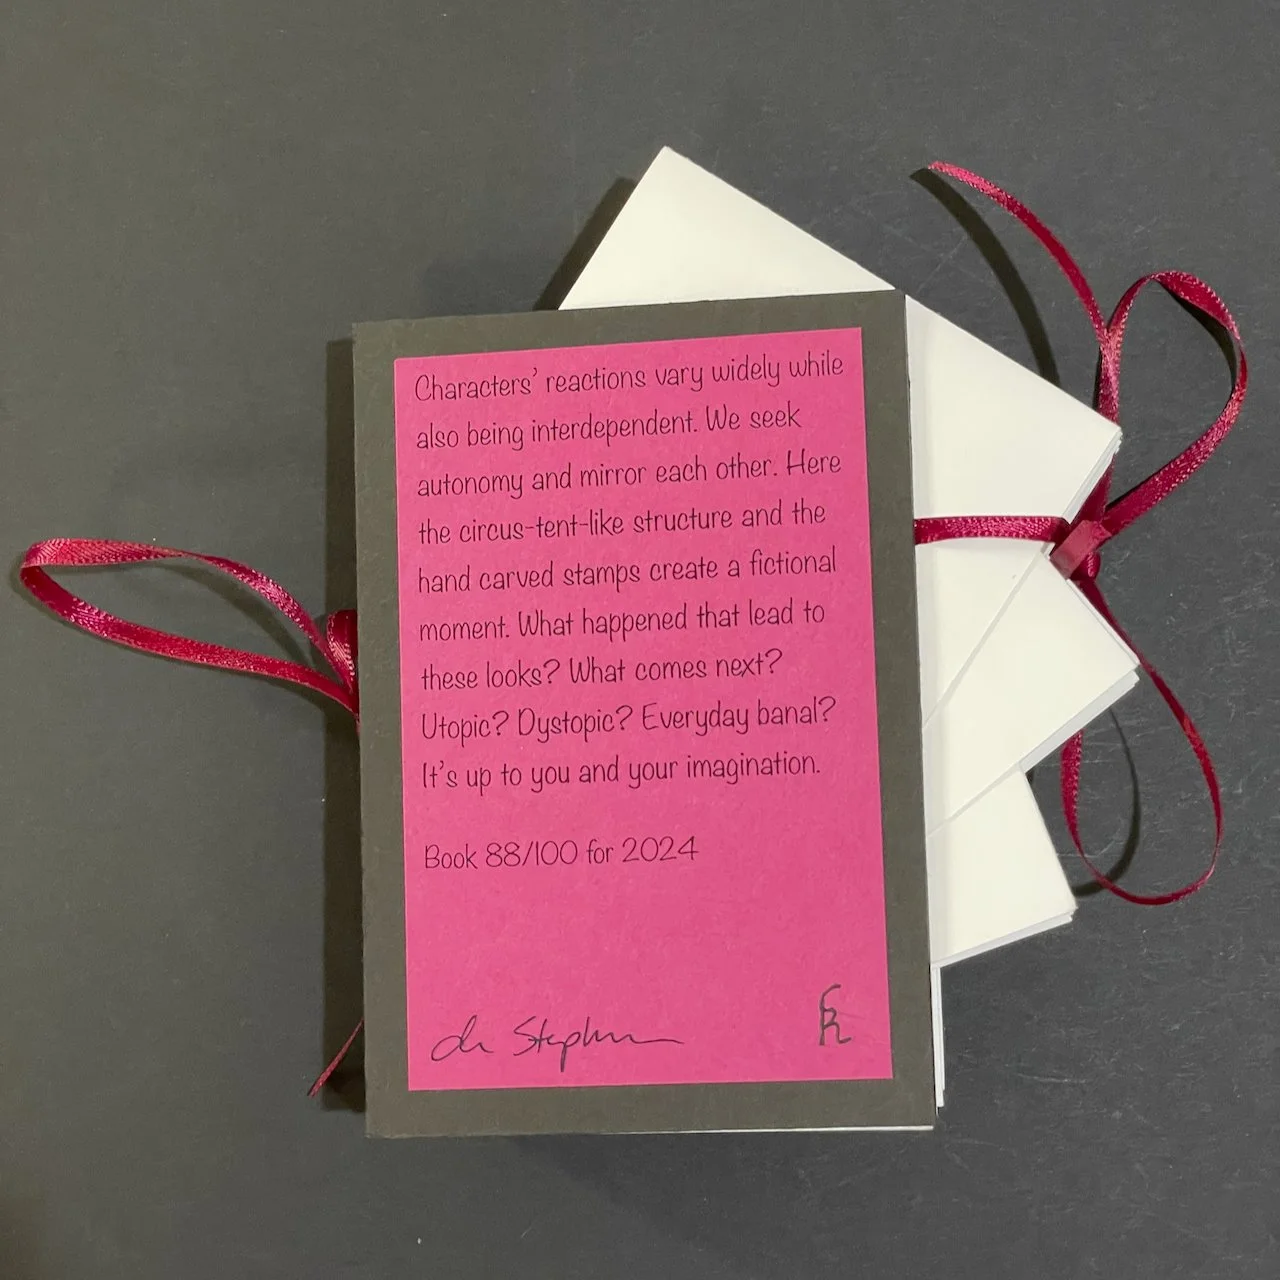 Characters' reactions vary widely while
also being interdependent. We seek
autonomy and mirror each other. Here
the circus-tent-like structure and the
hand carved stamps create a fictional
moment. What happened that lead to
these looks? What comes next?
Utopic? Dystopic? Everyday banal?
It's up to you and your imagination.
Book 88/100 for 2024